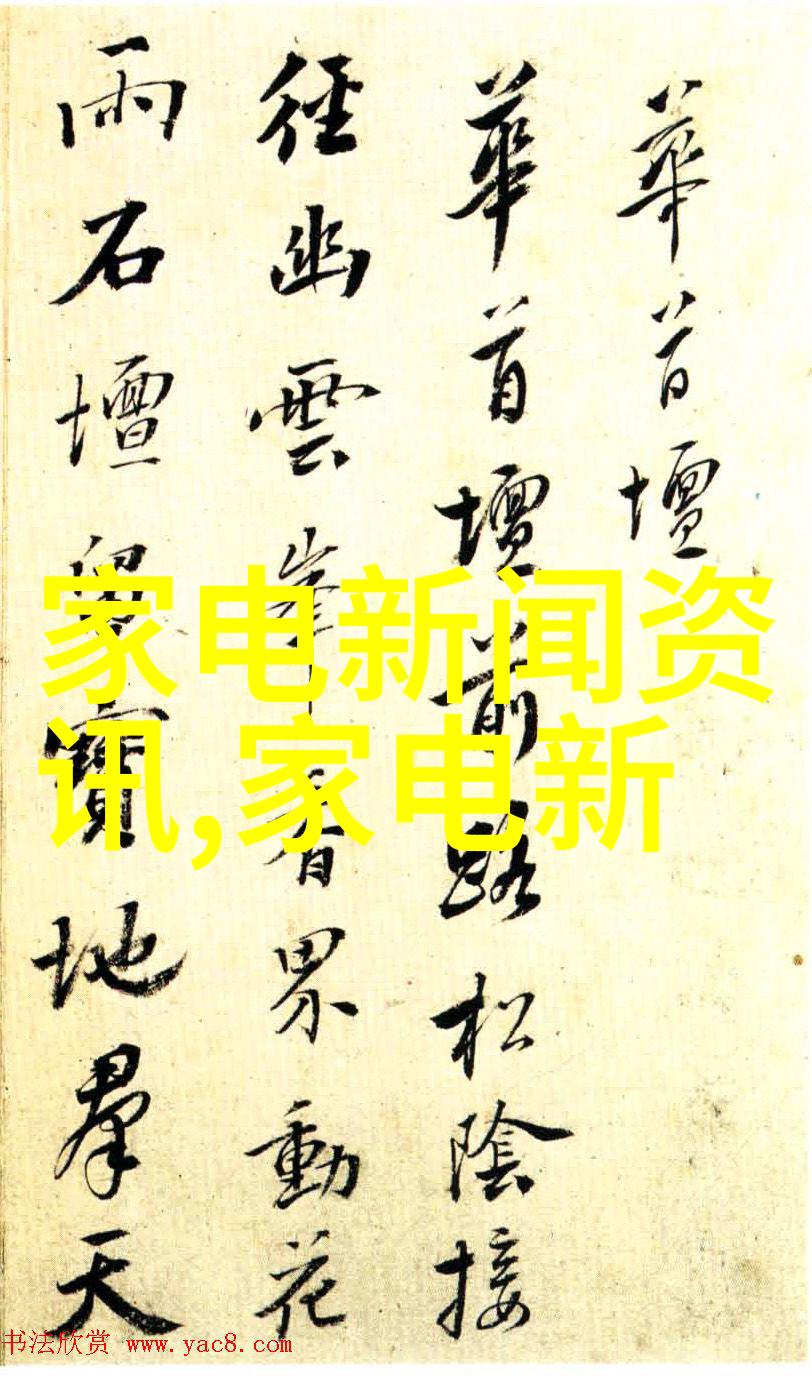 華首壇
華首壇前路松陰接
徑幽雲峯香界動花
雨石壇留寶地羣天
家电新闻资
讯,家电新
书法欣赏 www.yac8.com